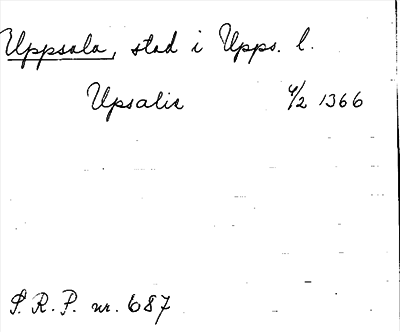 Uppsala, stad i Upps. l.
Upsalie 4/2 1366
S.R.P. nr. 687